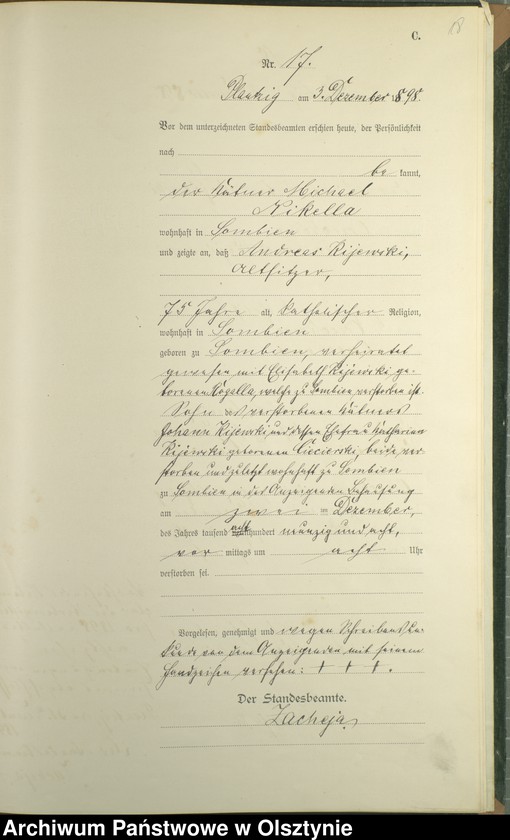 18
C.
Nr. 17.
Plautzig am 3. Dezember 1898.
Vor dem unterzeichneten Standesbeamten erschien heute, der Persönlichkeit
nach
be kannt,
der Kätner Michael
Nikella
wohnhaft in Lombien
und zeigte an, daß Andreas Kijewski,
Altsitzer,
75 Jahre alt, katholischer Religion,
wohnhaft in Lombien
geboren zu Lombien, verheiratet
gewesen mit Elisabeth Kijewski ge-
borenen Rogalla, welche zu Lombien verstorben ist.
Sohn des verstorbenen Kätners
Johann Kijewski und dessen Ehefrau Katharina
Kijewski geborenen Ciecierski, beide ver-
storben und zuletzt wohnhaft zu Lombien
zu Lombien in des Anzeigenden Behausung
am zwei ten Dezember,
des Jahres tausend acht hundert neunzig und acht,
vor mittags um acht Uhr
verstorben sei.
Vorgelesen, genehmigt und wegen Schreibensun-
kunde von dem Anzeigenden mit seinem
Handzeichen versehen: + + +.
Der Standesbeamte.
Zacheja
Archiwum Państwowe w Olsztynie